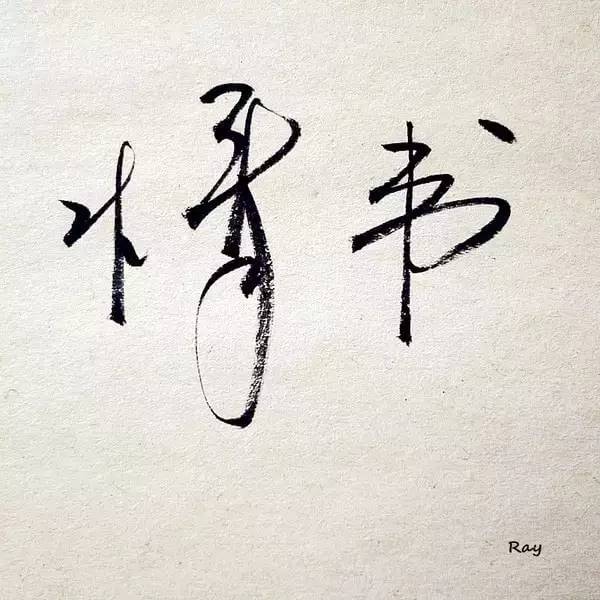 情书
Ray